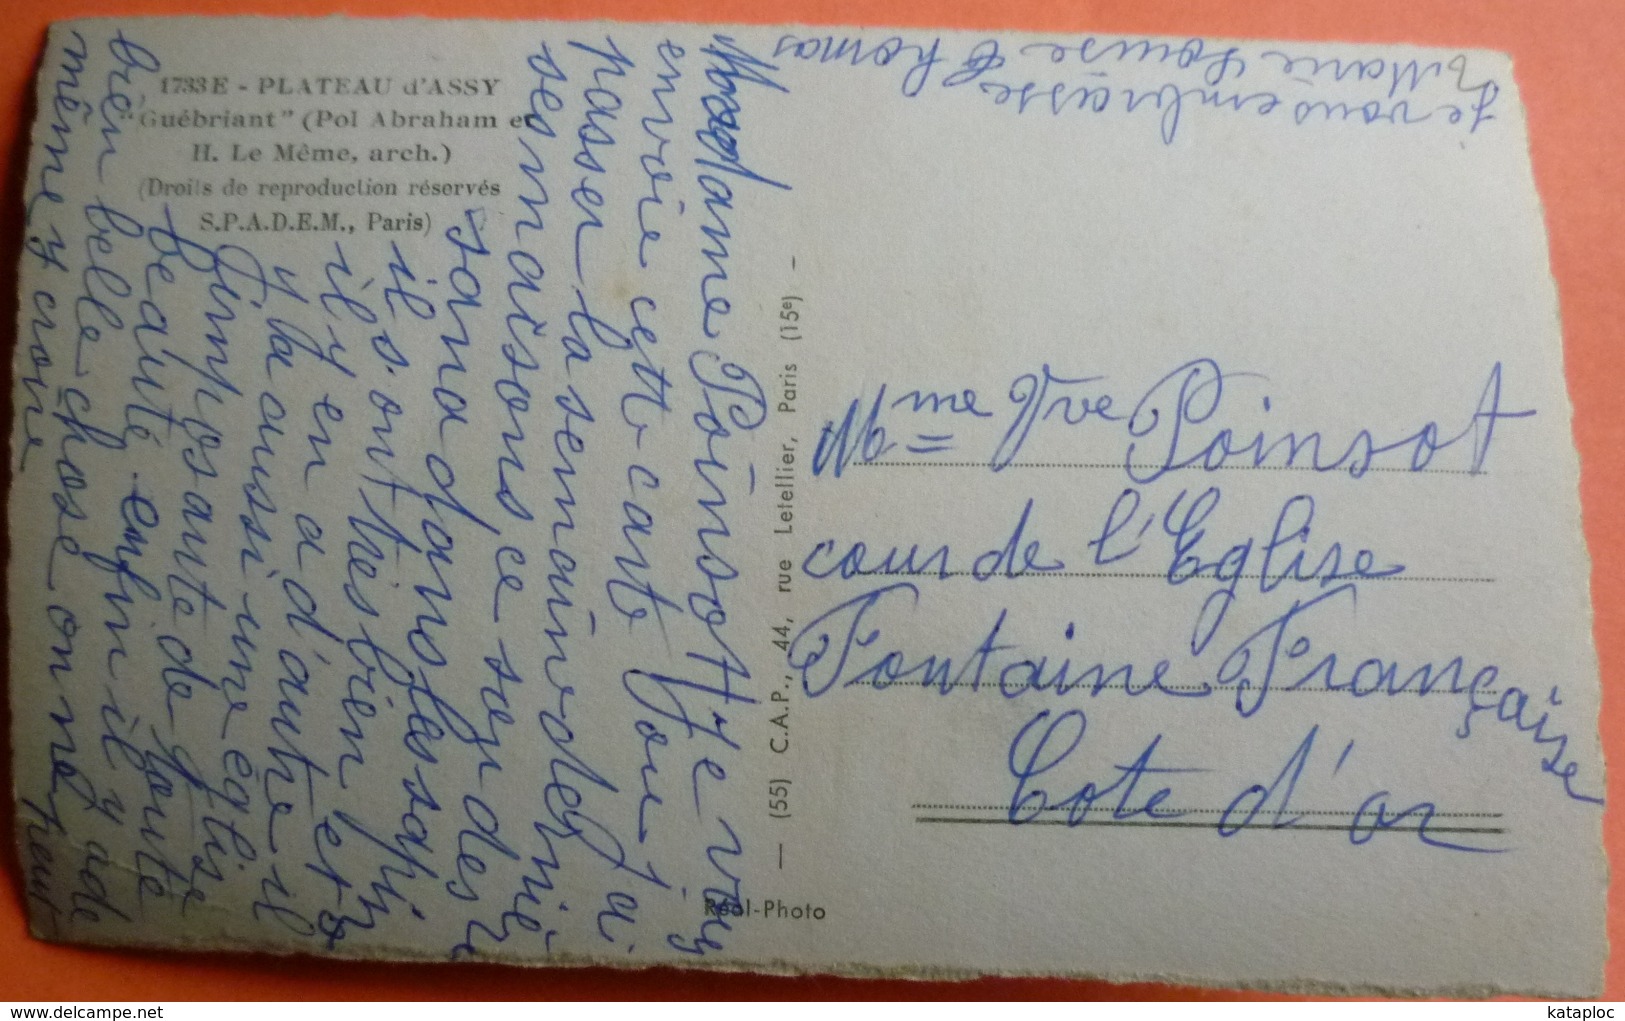 1733 E - PLATEAU d'ASSY
"Guébriant" (Pol Abraham et
H. Le Même, arch.)
(Droits de reproduction réservés
S.P.A.D.E.M., Paris)
Madame Poinsot Je vous
envoie cette carte Jou
passer la semaine dernié
ces maisons, ce sont des
sana dans les sapi
ils ont très bien
il y en a d'autre et
y la aussi une église
J'imposante de
beauté enfin il y a de
bien belle chose on ne peut
même y croire
Je vous embrasse
Marie Louise Thomas
— (55) C.A.P., 44, rue Letellier, Paris (15e) -
Réal-Photo
Mme Vve Poinsot
cour de l'Eglise
Fontaine Française
Cote d'or
www.delcampe.net
kataploc